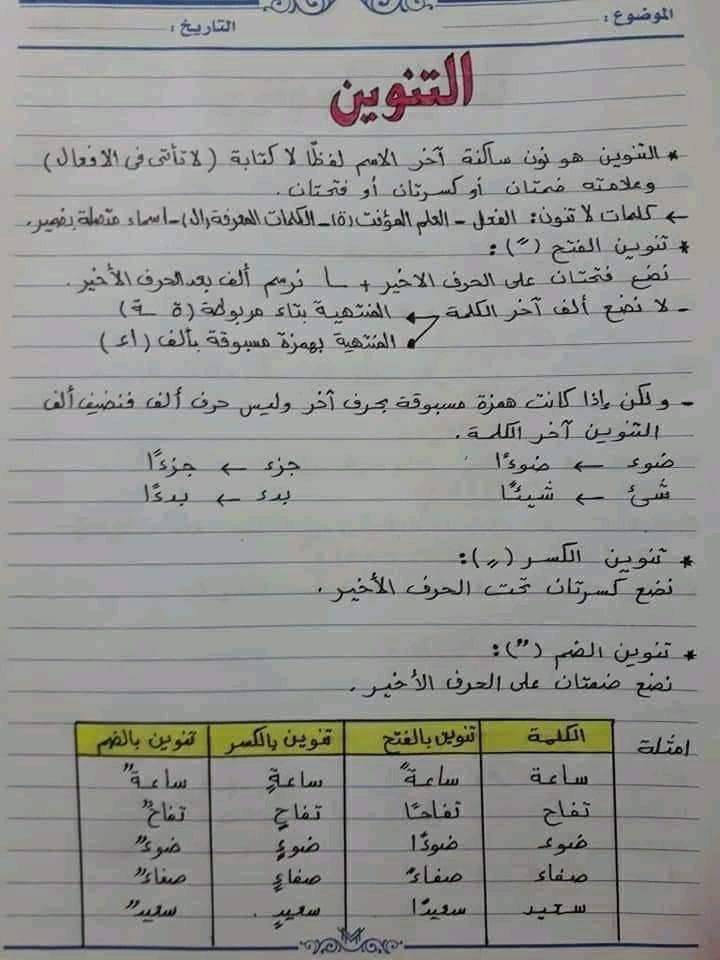 الموضوع :
التاريخ :
التنوين
* التنوين هو نون ساكنة آخر الاسم لفظًا لا كتابة (لا تأتى فى الافعال)
وعلامته ضمتان أو كسرتان أو فتحتان.
← كلمات لا تنون: الفعل - العلم المؤنث (ة) - الكلمات المعرفة (ال) - اسماء متصلة بضمير.
* تنوين الفتح ( ً ):
نضع فتحتان على الحرف الاخير + ـا نرسم ألف بعد الحرف الأخير.
- لا نضع ألف آخر الكلمة ← المنتهية بتاء مربوطة (ة ـة)
المنتهية بهمزة مسبوقة بألف (اء)
- ولكن إذا كانت همزة مسبوقة بحرف آخر وليس حرف ألف فنضيف ألف
التنوين آخر الكلمة.
ضوء ← ضوءًا جزء ← جزءًا
شئ ← شيئًا بدء ← بدءًا
* تنوين الكسر ( ٍ ):
نضع كسرتان تحت الحرف الأخير.
* تنوين الضم ( ٌ ):
نضع ضمتان على الحرف الأخير.
امثلة
الكلمة تنوين بالفتح تنوين بالكسر تنوين بالضم
ساعة ساعةً ساعةٍ ساعةٌ
تفاح تفاحًا تفاحٍ تفاحٌ
ضوء ضوءًا ضوءٍ ضوءٌ
صفاء صفاءً صفاءٍ صفاءٌ
سعيد سعيدًا سعيدٍ سعيدٌ